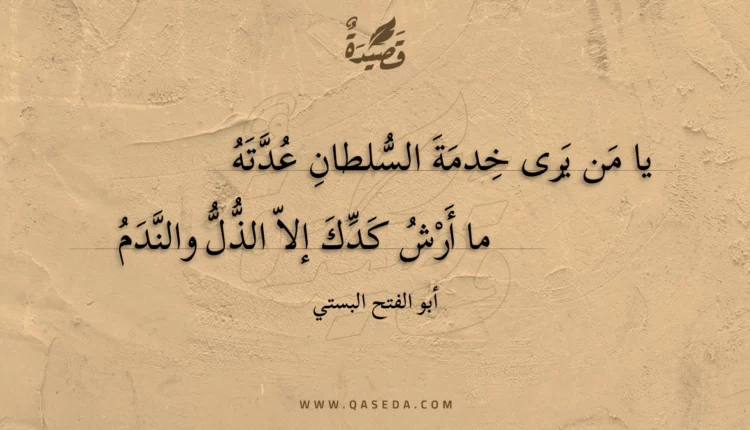 قَصِيْدَةٌ
يا مَن يَرى خِدمَةَ السُّلطانِ عُدَّتَهُ
ما أَرْشُ كَدِّكَ إلاّ الذُّلُّ والنَّدَمُ
أبو الفتح البستي
WWW.QASEDA.COM